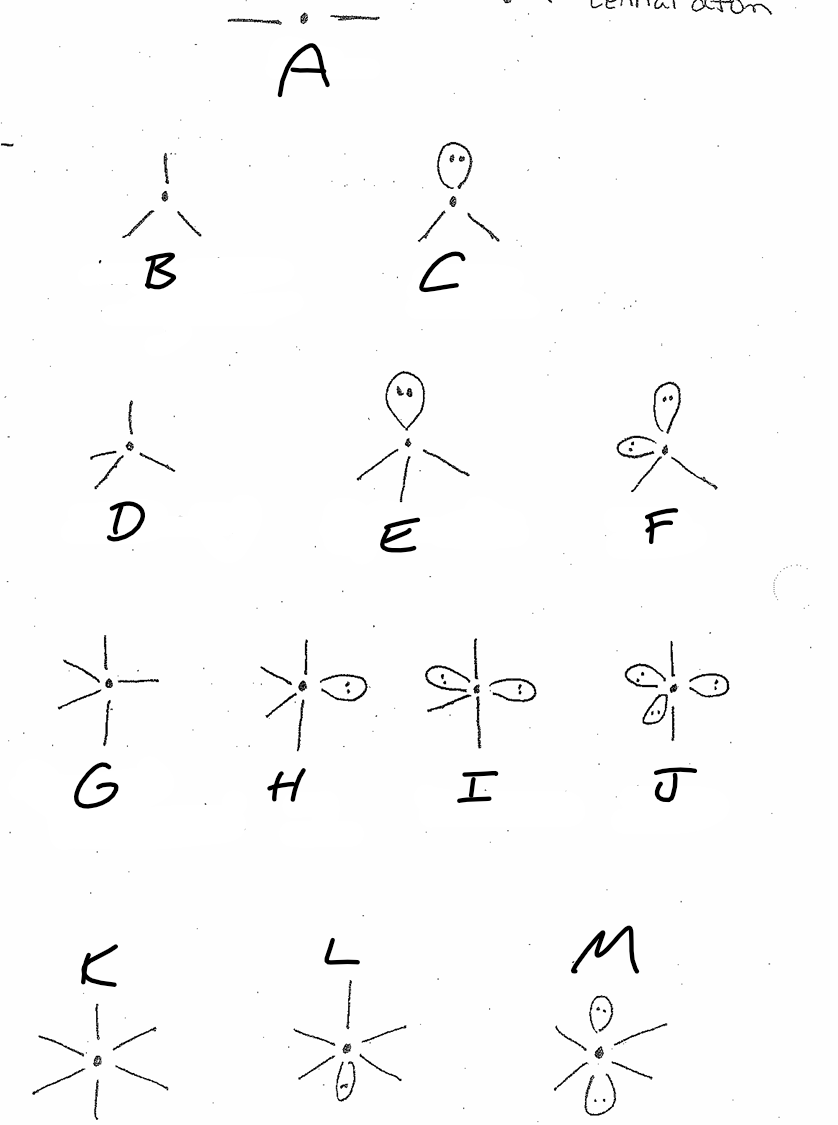 central atom
A
B C
D E F
G H I J
K L M